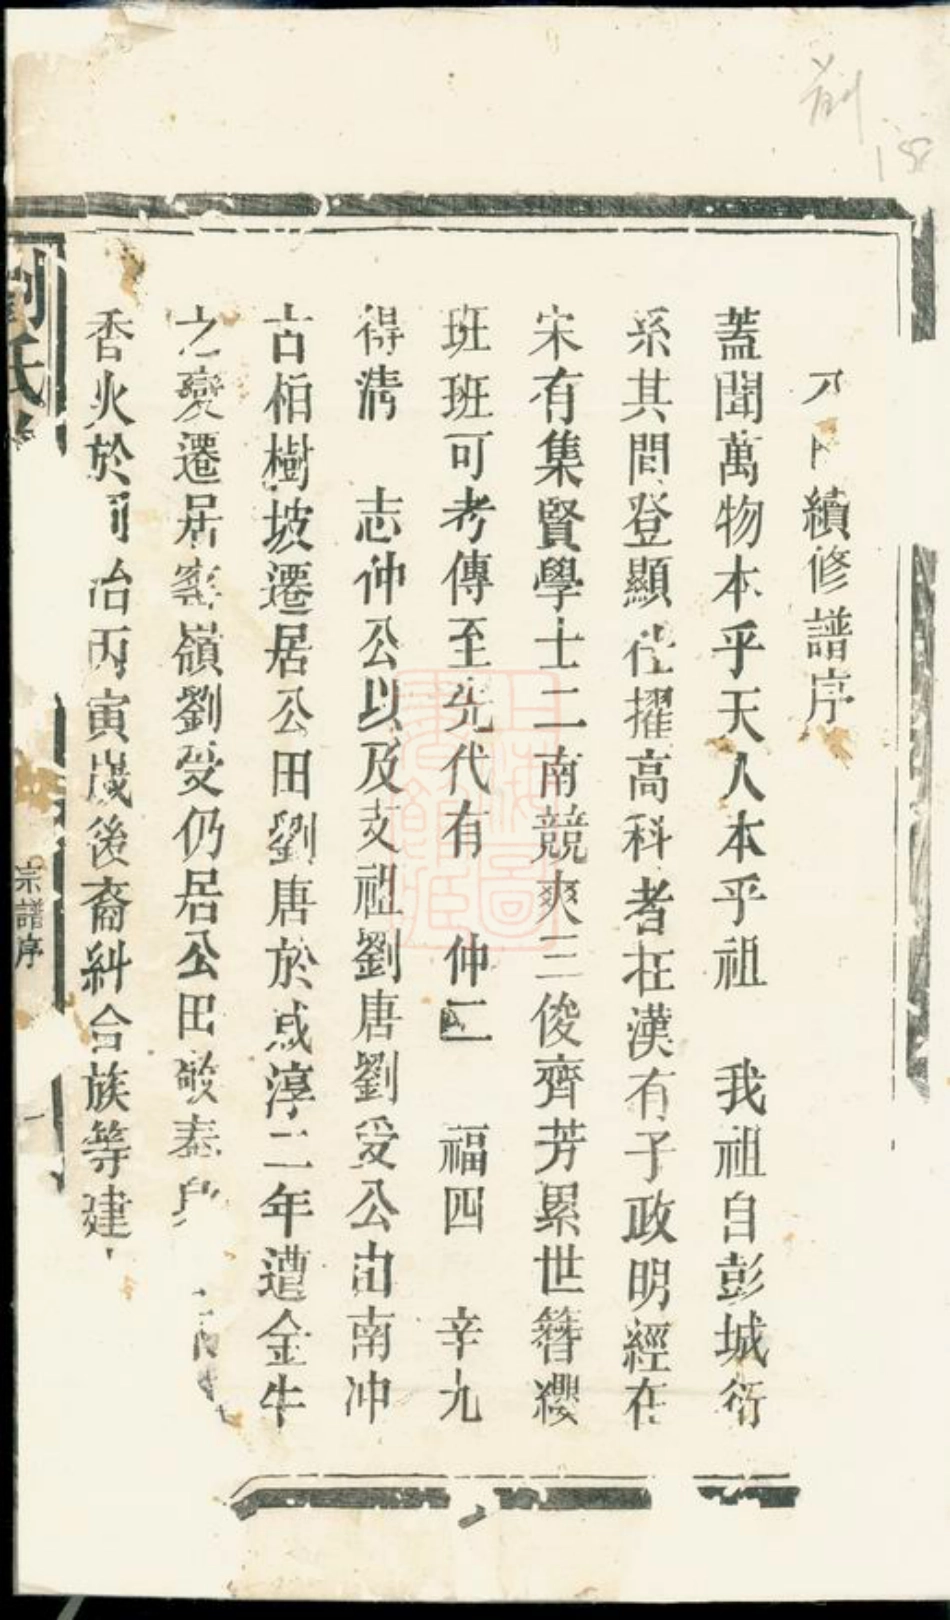 續修譜序
蓋聞萬物本乎天人本乎祖 我祖自彭城衍
系其間登顯仕擢高科者在漢有子政明經在
宋有集賢學士二南競爽三俊齊芳累世簪纓
班班可考傳至先代有 仲 福四 辛九
得淸 志仲公以及支祖劉唐劉受公由南冲
古柏樹坡遷居公田劉唐於咸淳二年遭金牛
之變遷居 嶺劉受仍居公田 泰
香火於 同治丙寅歲後裔糾合族等建
劉氏
宗譜序
一